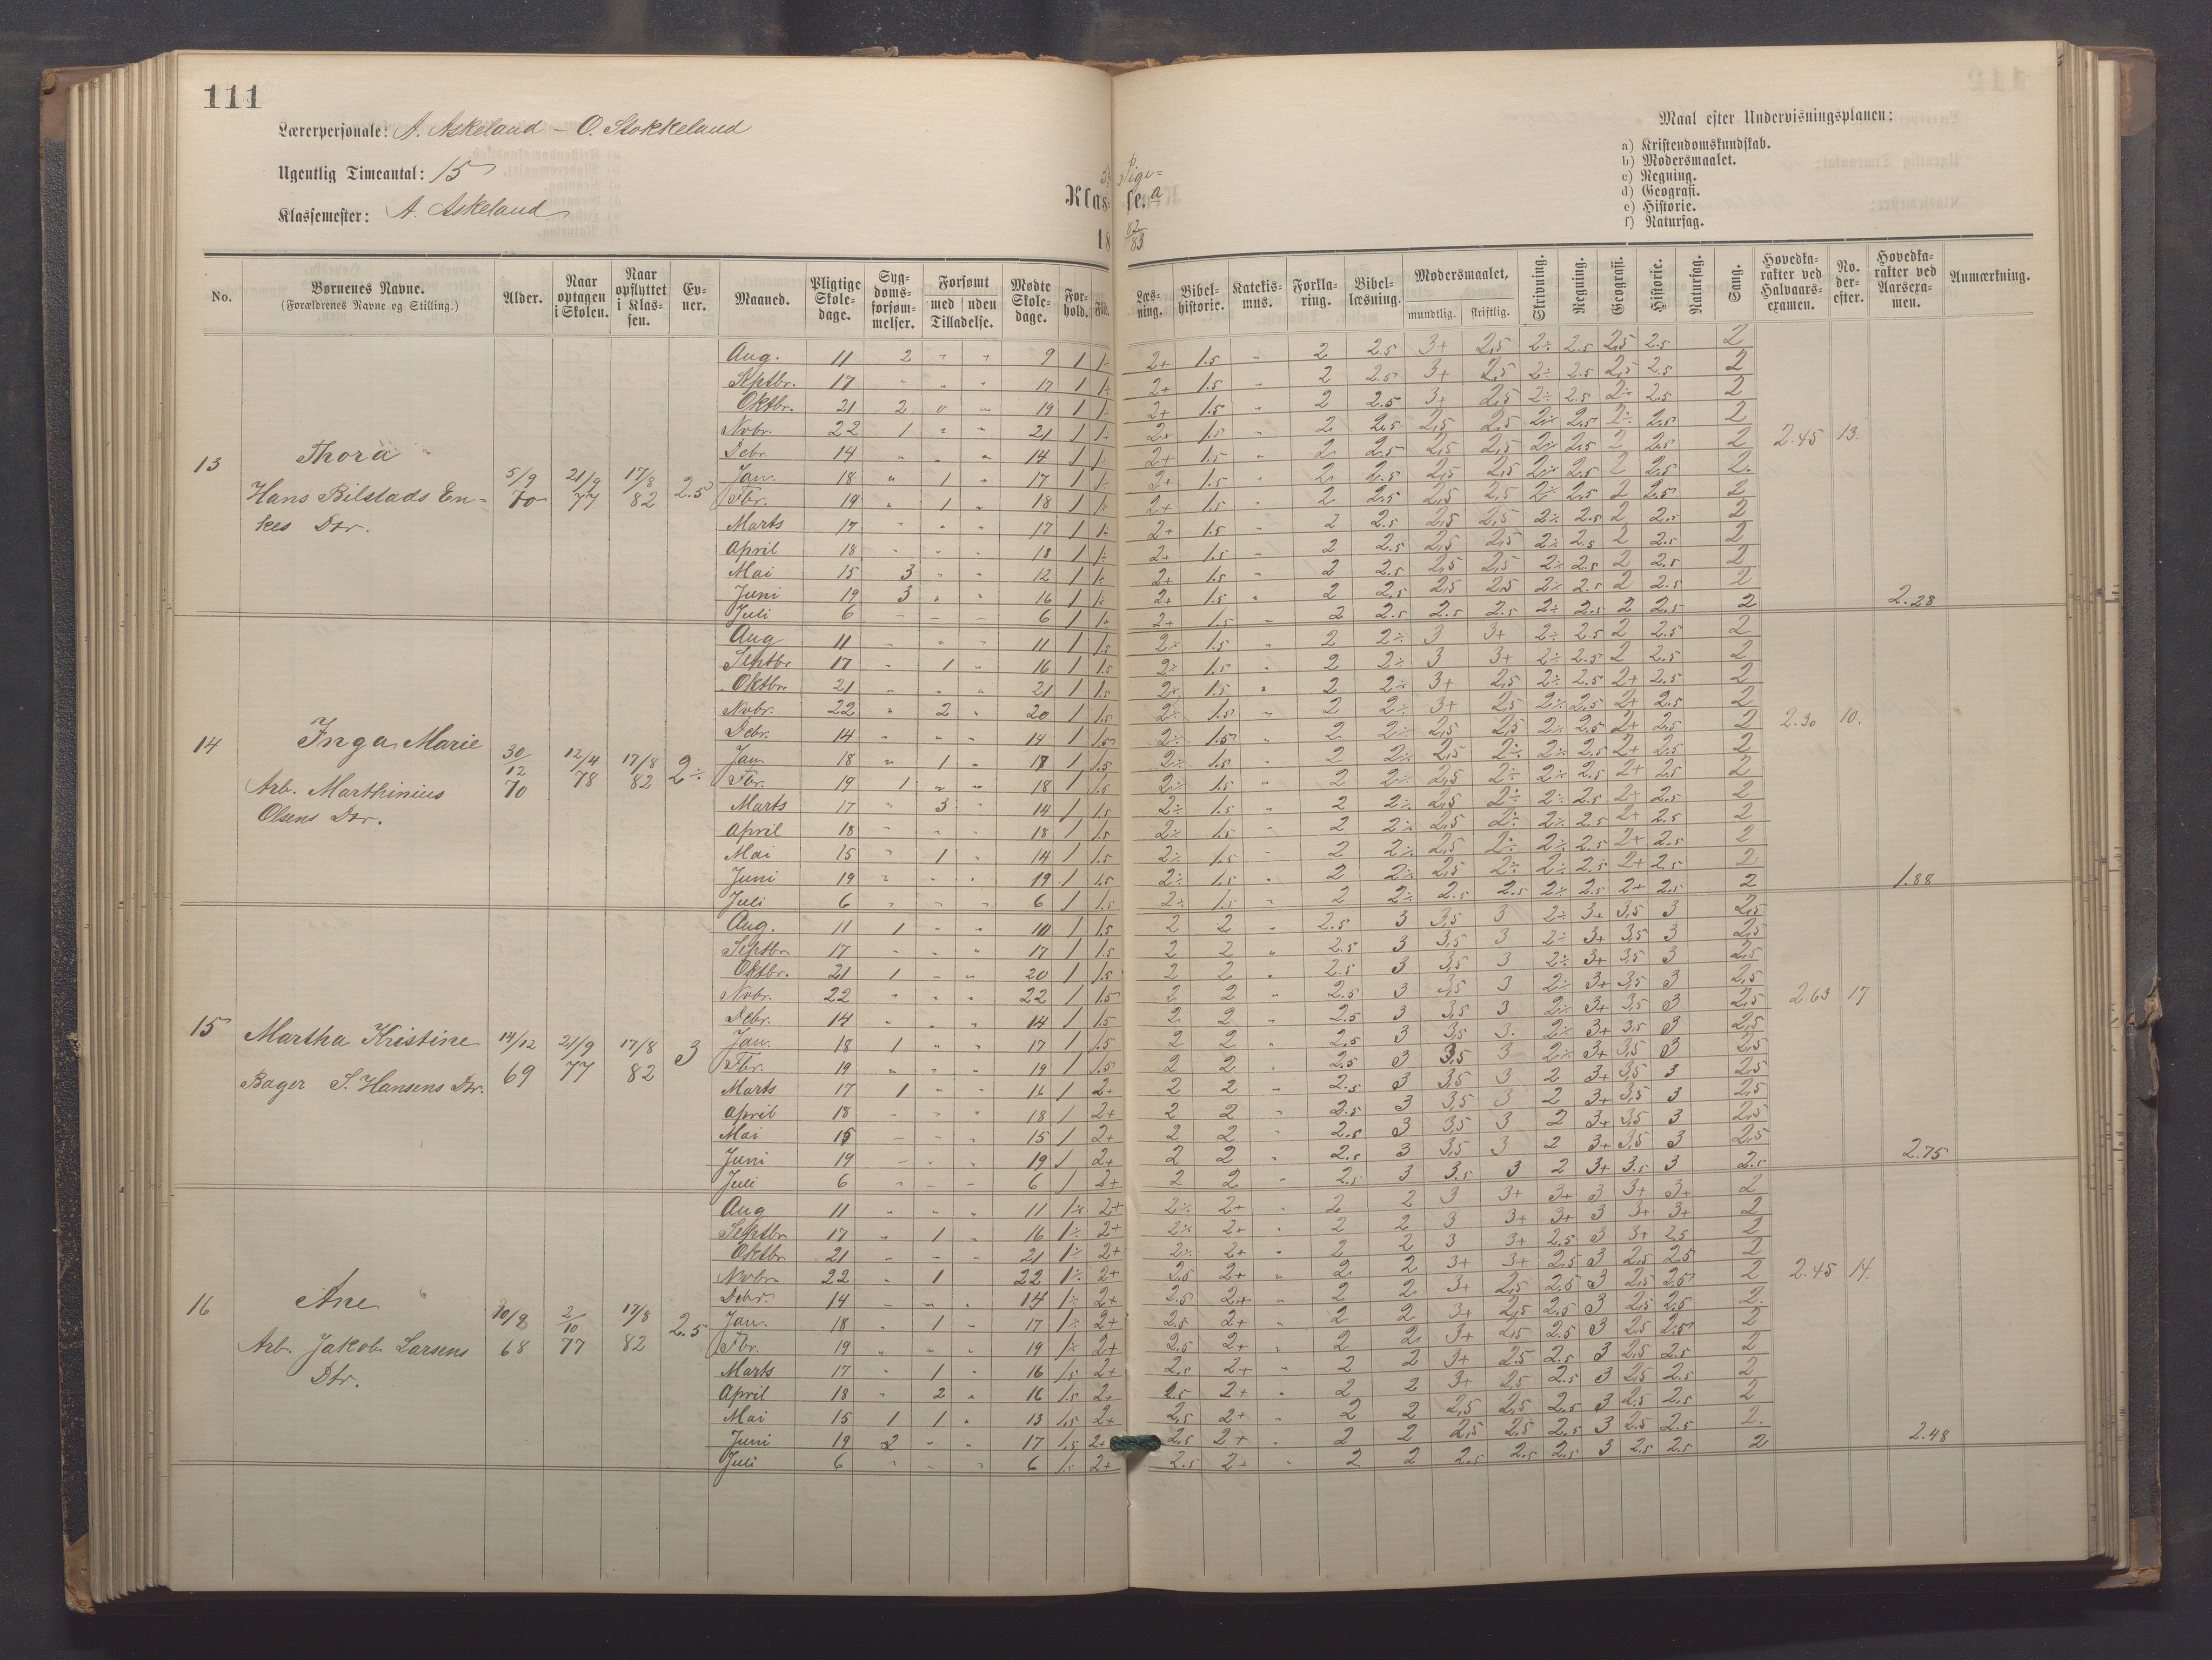 111
Lærerpersonale: A. Askeland - O. Stokkeland
Ugentlig Timeantal: 15
Klassemester: A. Askeland
Pige-
Klasse. a
18 82/83
Maal efter Undervisningsplanen:
a) Kristendomskundskab.
b) Modersmaalet.
c) Regning.
d) Geografi.
e) Historie.
f) Naturfag.
No. Børnenes Navne. (Forældrenes Navne og Stilling.) Alder. Naar optagen i Skolen. Naar opflyttet i Klassen. Evner. Maaned. Pligtige Skoledage. Sygdomsforsømmelser. Forsømt med uden Tilladelse. Mødte Skoledage. Forhold. Flid. Læsning. Bibelhistorie. Katekismus. Forklaring. Bibellæsning. Modersmaalet, mundtlig. skriftlig. Skrivning. Regning. Geografi. Historie. Naturfag. Sang. Hovedkarakter ved Halvaarsexamen. No. derefter. Hovedkarakter ved Aarsexamen. Anmærkning.
13 Thora
Hans Bilstads Enkes Dtr.
5/9 70 21/9 77 17/8 82 2.5
Aug. 11 2 " " 9 1 1÷ 2+ 1.5 " 2 2.5 3+ 2,5 2÷ 2.5 2,5 2.5 2
Septbr. 17 " " " 17 1 1÷ 2+ 1.5 " 2 2.5 3+ 2,5 2÷ 2.5 2,5 2.5 2
Oktbr. 21 2 " " 19 1 1÷ 2+ 1.5 " 2 2.5 3+ 2,5 2÷ 2.5 2÷ 2.5 2
Nvbr. 22 1 " " 21 1 1÷ 2+ 1.5 " 2 2.5 2,5 2,5 2÷ 2.5 2÷ 2.5 2
Debr. 14 " " " 14 1 1÷ 2+ 1.5 " 2 2.5 2,5 2,5 2÷ 2.5 2 2.5 2 2.45 13.
Jan. 18 " 1 " 17 1 1÷ 2+ 1.5 " 2 2.5 2,5 2,5 2÷ 2.5 2 2.5 2.
Fbr. 19 " 1 " 18 1 1÷ 2+ 1.5 " 2 2.5 2,5 2,5 2÷ 2.5 2 2.5 2
Marts 17 " " " 17 1 1÷ 2+ 1.5 " 2 2.5 2,5 2,5 2÷ 2.5 2 2.5 2
April 18 " " " 18 1 1÷ 2+ 1.5 " 2 2.5 2,5 2,5 2÷ 2.5 2 2.5 2
Mai 15 3 " " 12 1 1÷ 2+ 1.5 " 2 2.5 2,5 2,5 2÷ 2.5 2 2.5 2
Juni 19 3 " " 16 1 1÷ 2+ 1.5 " 2 2.5 2,5 2,5 2÷ 2.5 2 2.5 2
Juli 6 " " " 6 1 1÷ 2+ 1.5 " 2 2.5 2.5 2.5 2÷ 2.5 2 2.5 2 2.28
14 Inga Marie
Arb. Marthinius
Olsens Dtr.
30/12 70 12/4 78 17/8 82 2÷
Aug 11 " " " 11 1 1.5 2÷ 1.5 " 2 2÷ 3 3+ 2÷ 2.5 2 2.5 2
Septbr 17 " 1 " 16 1 1.5 2÷ 1.5 " 2 2÷ 3 3+ 2÷ 2.5 2 2.5 2
Oktbr. 21 " " " 21 1 1.5 2÷ 1.5 " 2 2÷ 3+ 2,5 2÷ 2.5 2+ 2.5 2
Nvbr. 22 " 2 " 20 1 1.5 2÷ 1.5 " 2 2÷ 3+ 2,5 2÷ 2.5 2+ 2.5 2
Debr. 14 " " " 14 1 1.5 2÷ 1.5 " 2 2÷ 2,5 2,5 2÷ 2.5 2+ 2.5 2 2.30 10.
Jan. 18 " 1 " 17 1 1.5 2÷ 1.5 " 2 2÷ 2,5 2÷ 2÷ 2.5 2+ 2.5 2
Fbr. 19 1 " " 18 1 1.5 2÷ 1.5 " 2 2÷ 2,5 2÷ 2÷ 2.5 2+ 2.5 2
Marts 17 " 3 " 14 1 1.5 2÷ 1.5 " 2 2÷ 2,5 2÷ 2÷ 2.5 2+ 2.5 2
April 18 " " " 18 1 1.5 2÷ 1.5 " 2 2÷ 2,5 2÷ 2÷ 2.5 2+ 2.5 2
Mai 15 " 1 " 14 1 1.5 2÷ 1.5 " 2 2÷ 2,5 2÷ 2÷ 2.5 2+ 2.5 2
Juni 19 " " " 19 1 1.5 2÷ 1.5 " 2 2÷ 2,5 2÷ 2÷ 2.5 2+ 2.5 2
Juli 6 " " " 6 1 1.5 2÷ 1.5 " 2 2÷ 2.5 2.5 2÷ 2.5 2+ 2.5 2 1.88
15 Martha Kristine
Bager S. Hansens Dtr.
14/12 69 21/9 77 17/8 82 3
Aug. 11 1 " " 10 1 1.5 2 2 " 2.5 3 3,5 3 2÷ 3+ 3,5 3 2,5
Septbr 17 " " " 17 1 1.5 2 2 " 2.5 3 3,5 3 2÷ 3+ 3,5 3 2,5
Oktbr. 21 1 " " 20 1 1.5 2 2 " 2.5 3 3,5 3 2÷ 3+ 3,5 3 2,5
Nvbr. 22 " " " 22 1 1.5 2 2 " 2.5 3 3,5 3 2÷ 3+ 3,5 3 2,5
Debr. 14 " " " 14 1 1.5 2 2 " 2.5 3 3,5 3 2÷ 3+ 3,5 3 2,5 2.63 17
Jan. 18 1 " " 17 1 1.5 2 2 " 2.5 3 3,5 3. 2÷ 3+ 3,5 3 2,5
Fbr. 19 " " " 19 1 1.5 2 2 " 2.5 3 3,5 3 2÷ 3+ 3,5 3 2,5
Marts 17 1 " " 16 1 2+ 2 2 " 2.5 3 3,5 3 2 3+ 3,5 3 2,5
April 18 " " " 18 1 2+ 2 2 " 2.5 3 3,5 3 2 3+ 3,5 3 2,5
Mai 15 " " " 15 1 2+ 2 2 " 2.5 3 3,5 3 2 3+ 3,5 3 2,5
Juni 19 " " " 19 1 2+ 2 2 " 2.5 3 3,5 3 2 3+ 3,5 3 2,5
Juli 6 " " " 6 1 2+ 2 2 " 2.5 3 3.5 3 2 3+ 3.5 3 2.5 2.75
16 Ane
Arb. Jakob Larsens
Dtr.
10/8 68 2/10 77 17/8 82 2.5
Aug 11 " " " 11 1÷ 2+ 2÷ 2+ " 2 2 3 3+ 3+ 3 3+ 3+ 2
Septbr 17 " 1 " 16 1÷ 2+ 2÷ 2+ " 2 2 3 3+ 3+ 3 3+ 3+ 2
Oktbr 21 " " " 21 1÷ 2+ 2÷ 2+ " 2 2 3 3+ 2.5 3 3+ 2.5 2
Nvbr. 22 " 1 22 1÷ 2+ 2.5 2+ " 2 2 3+ 3+ 2.5 3 2,5 2.5 2
Debr. 14 " " " 14 1÷ 2+ 2.5 2+ " 2 2 3+ 2,5 2.5 3 2,5 2.5 2 2.45 14.
Jan. 18 " 1 " 17 1÷ 2+ 2.5 2+ " 2 2 3+ 2,5 2.5 3 2,5 2.5 2.
Fbr. 19 " " " 19 1÷ 2+ 2.5 2+ " 2 2 3+ 2,5 2.5 3 2,5 2.5 2
Marts 17 " 1 " 16 1.5 2+ 2.5 2+ " 2 2 3+ 2.5 2.5 3 2,5 2.5 2
April 18 " 2 " 16 1.5 2+ 2.5 2+ " 2 2 3+ 2,5 2.5 3 2,5 2.5 2
Mai 15 1 1 " 13 1.5 2+ 2.5 2+ " 2 2 2,5 2,5 2.5 3 2.5 2.5 2
Juni 19 2 " " 17 1.5 2+ 2.5 2+ " 2 2 2,5 2,5 2.5 3 2.5 2.5 2.
Juli 6 " " " 6 1.5 2+ 2.5 2+ " 2 2 2.5 2.5 2.5 3 2.5 2.5 2 2.48